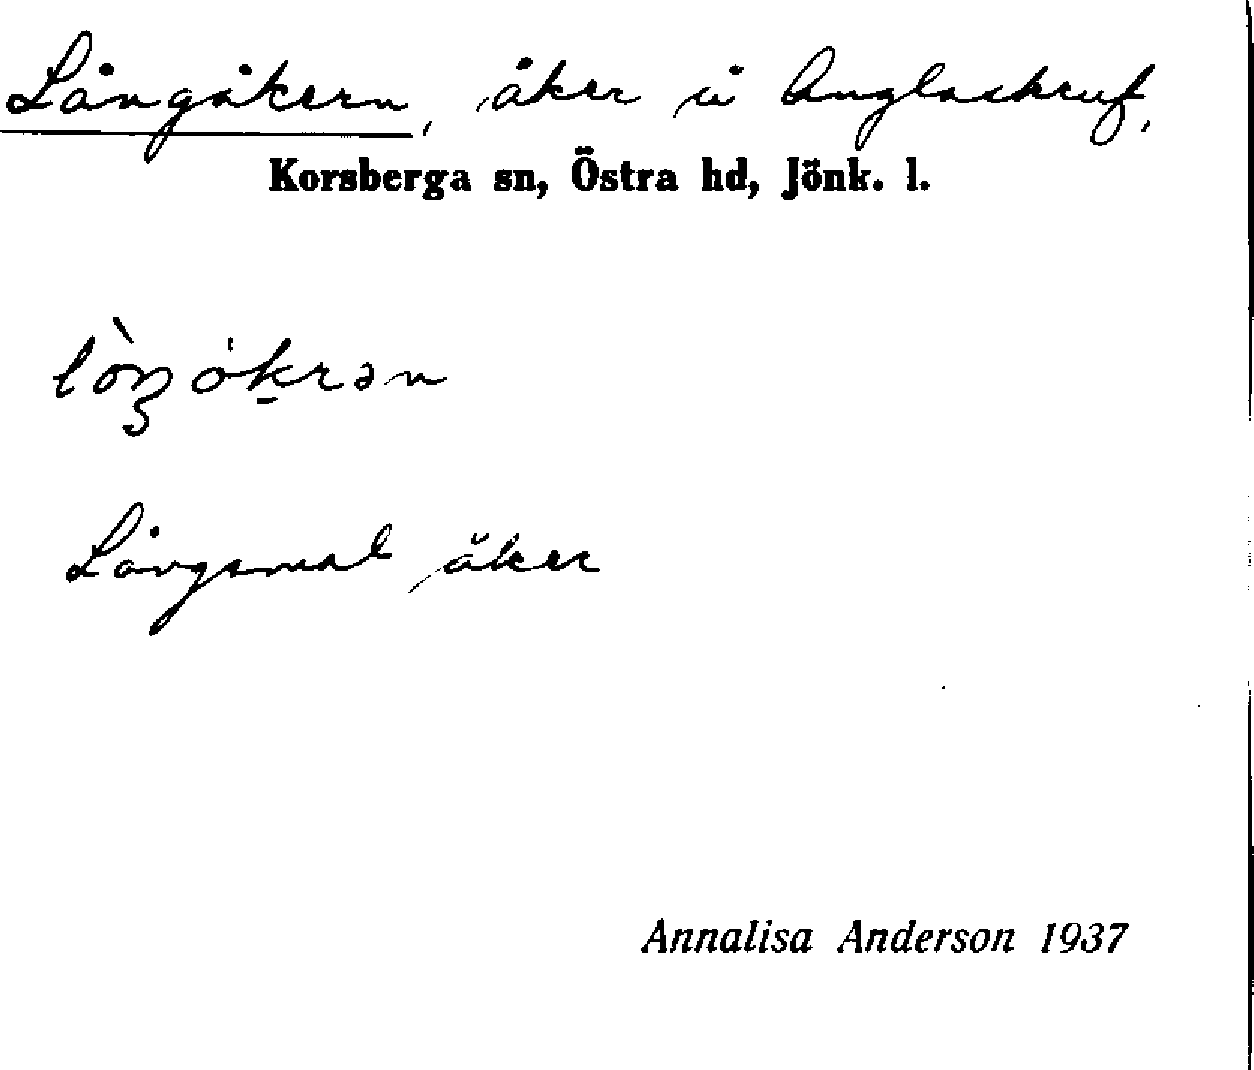 Långåkern, åker i Anglaskruf,
Korsberga sn, Östra hd, Jönk. l.
lòŋókrən
Långsmal åker
Annalisa Anderson 1937